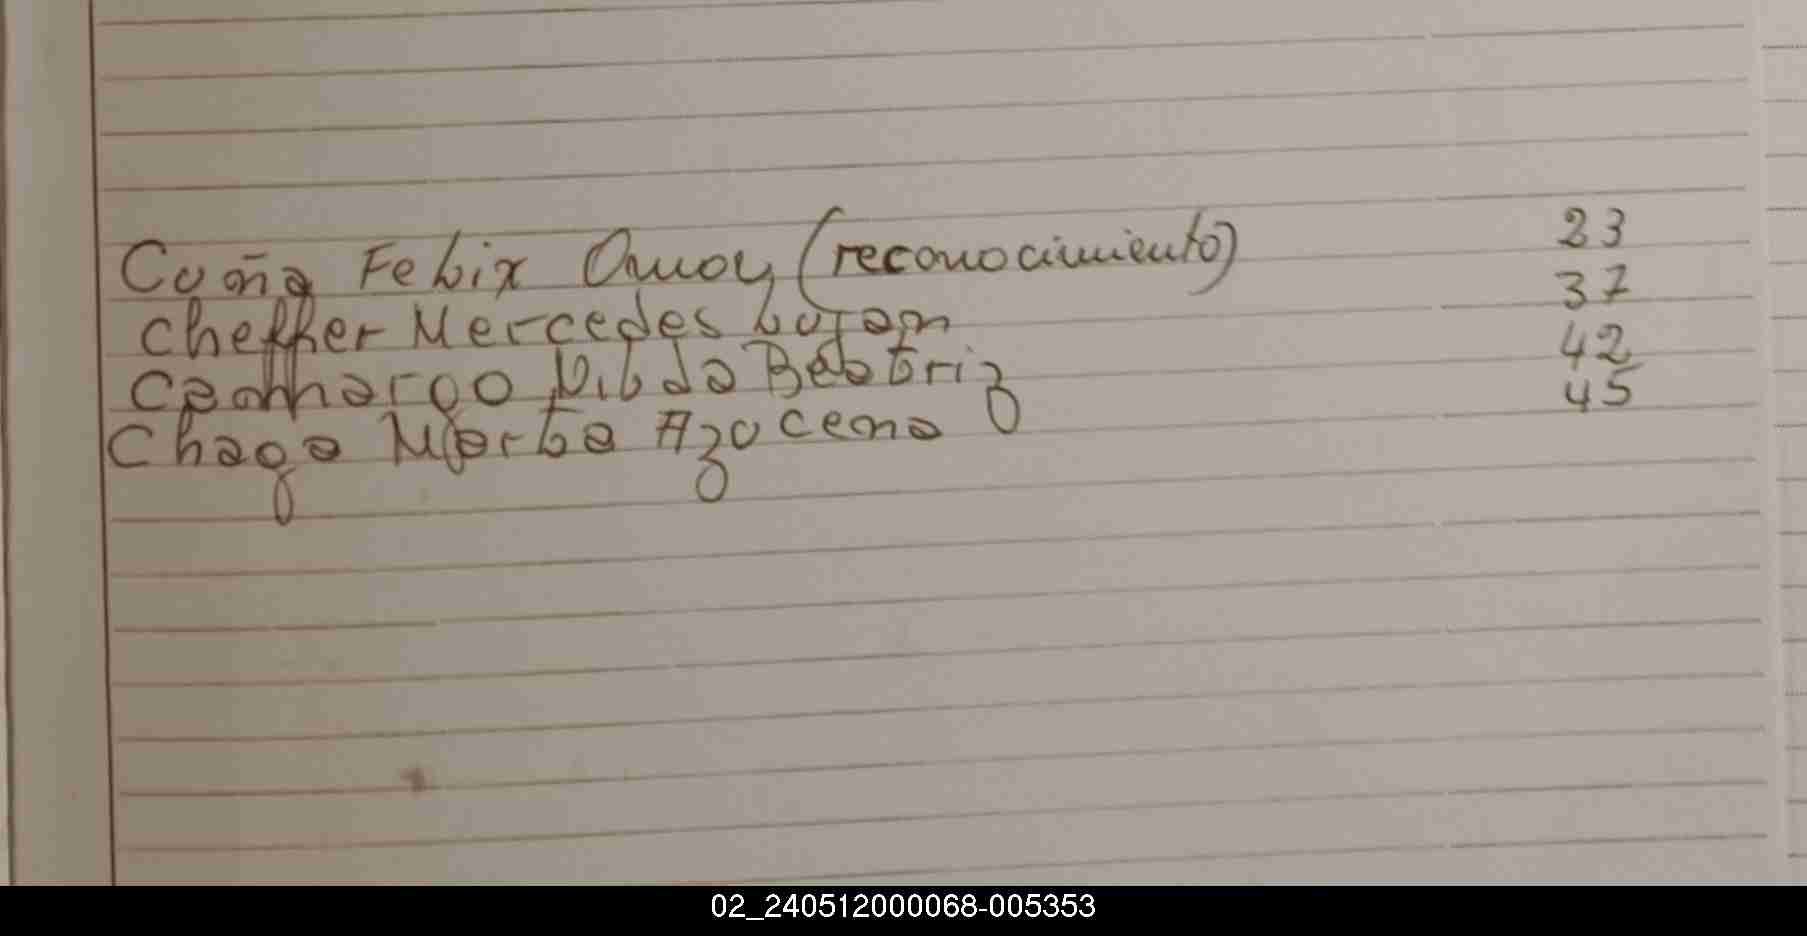 Cuña Felix Omar (reconocimiento) 23
Cheffer Mercedes Lujan 37
Camhargo Nilda Beatriz 42
Chaga Marta Azucena 45
02_240512000068-005353